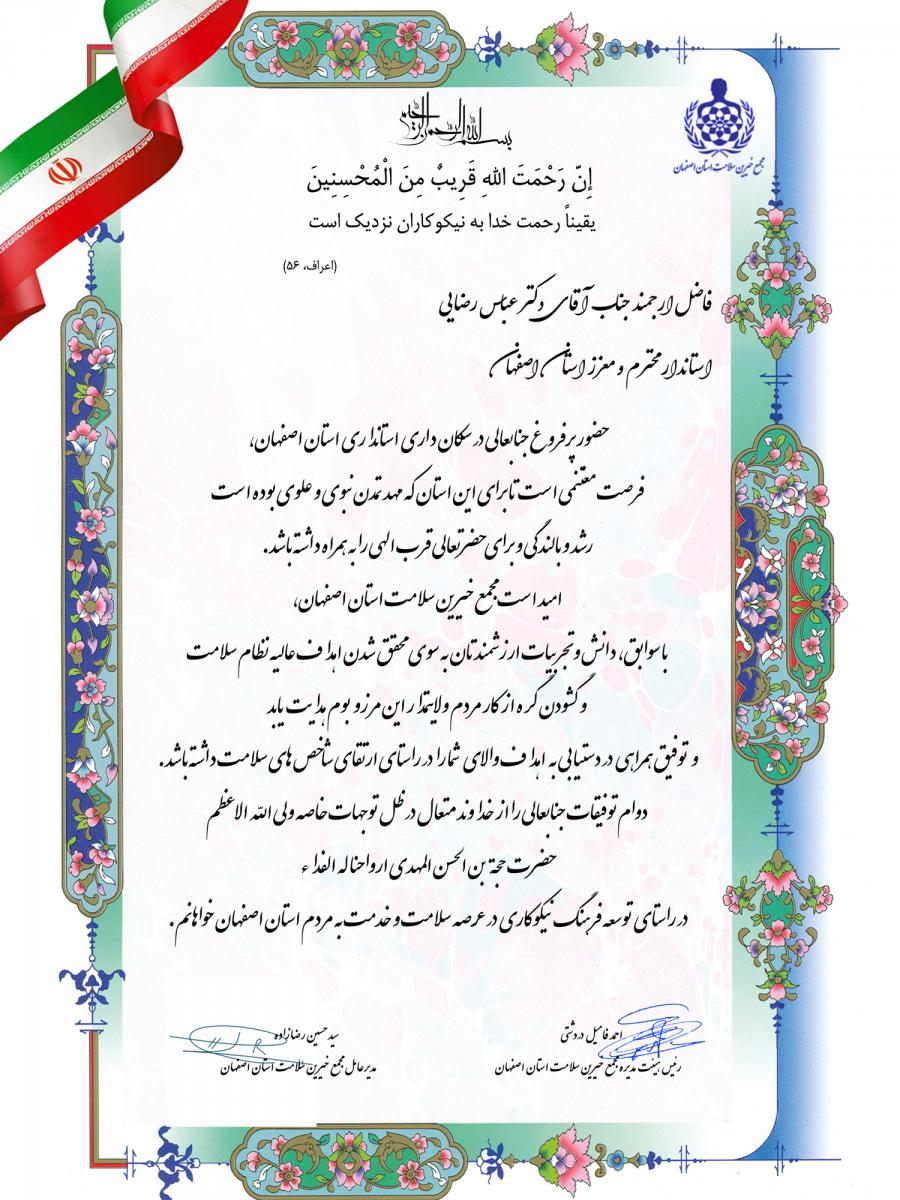 بسم الله الرحمن الرحیم
مجمع خیرین سلامت استان اصفهان
إِنّ رَحْمَتَ اللهِ قَرِیبٌ مِنَ الْمُحْسِنِینَ
یقیناً رحمت خدا به نیکوکاران نزدیک است
(اعراف، ۵۶)
فاضل ارجمند جناب آقای دکتر عباس رضایی
استاندار محترم و معزز استان اصفهان
حضور پرفروغ جنابعالی در سکان داری استانداری استان اصفهان،
فرصت مغتنمی است تا برای این استان که مهد تمدن نبوی و علوی بوده است
رشد و بالندگی و برای حضرتعالی قرب الهی را به همراه داشته باشد.
امید است مجمع خیرین سلامت استان اصفهان،
با سوابق، دانش و تجربیات ارزشمندتان به سوی محقق شدن اهداف عالیه نظام سلامت
و گشودن گره از کار مردم ولایتمدار این مرز و بوم هدایت یابد
و توفیق همراهی در دستیابی به اهداف والای شما را در راستای ارتقای شاخص های سلامت داشته باشد.
دوام توفیقات جنابعالی را از خداوند متعال در ظل توجهات خاصه ولی الله الاعظم
حضرت حجة بن الحسن المهدی ارواحنا له الفداء
در راستای توسعه فرهنگ نیکوکاری در عرصه سلامت و خدمت به مردم استان اصفهان خواهانم.
احمد فامیل دردشتی
رئیس هیئت مدیره مجمع خیرین سلامت استان اصفهان
سید حسین رضازاده
مدیرعامل مجمع خیرین سلامت استان اصفهان